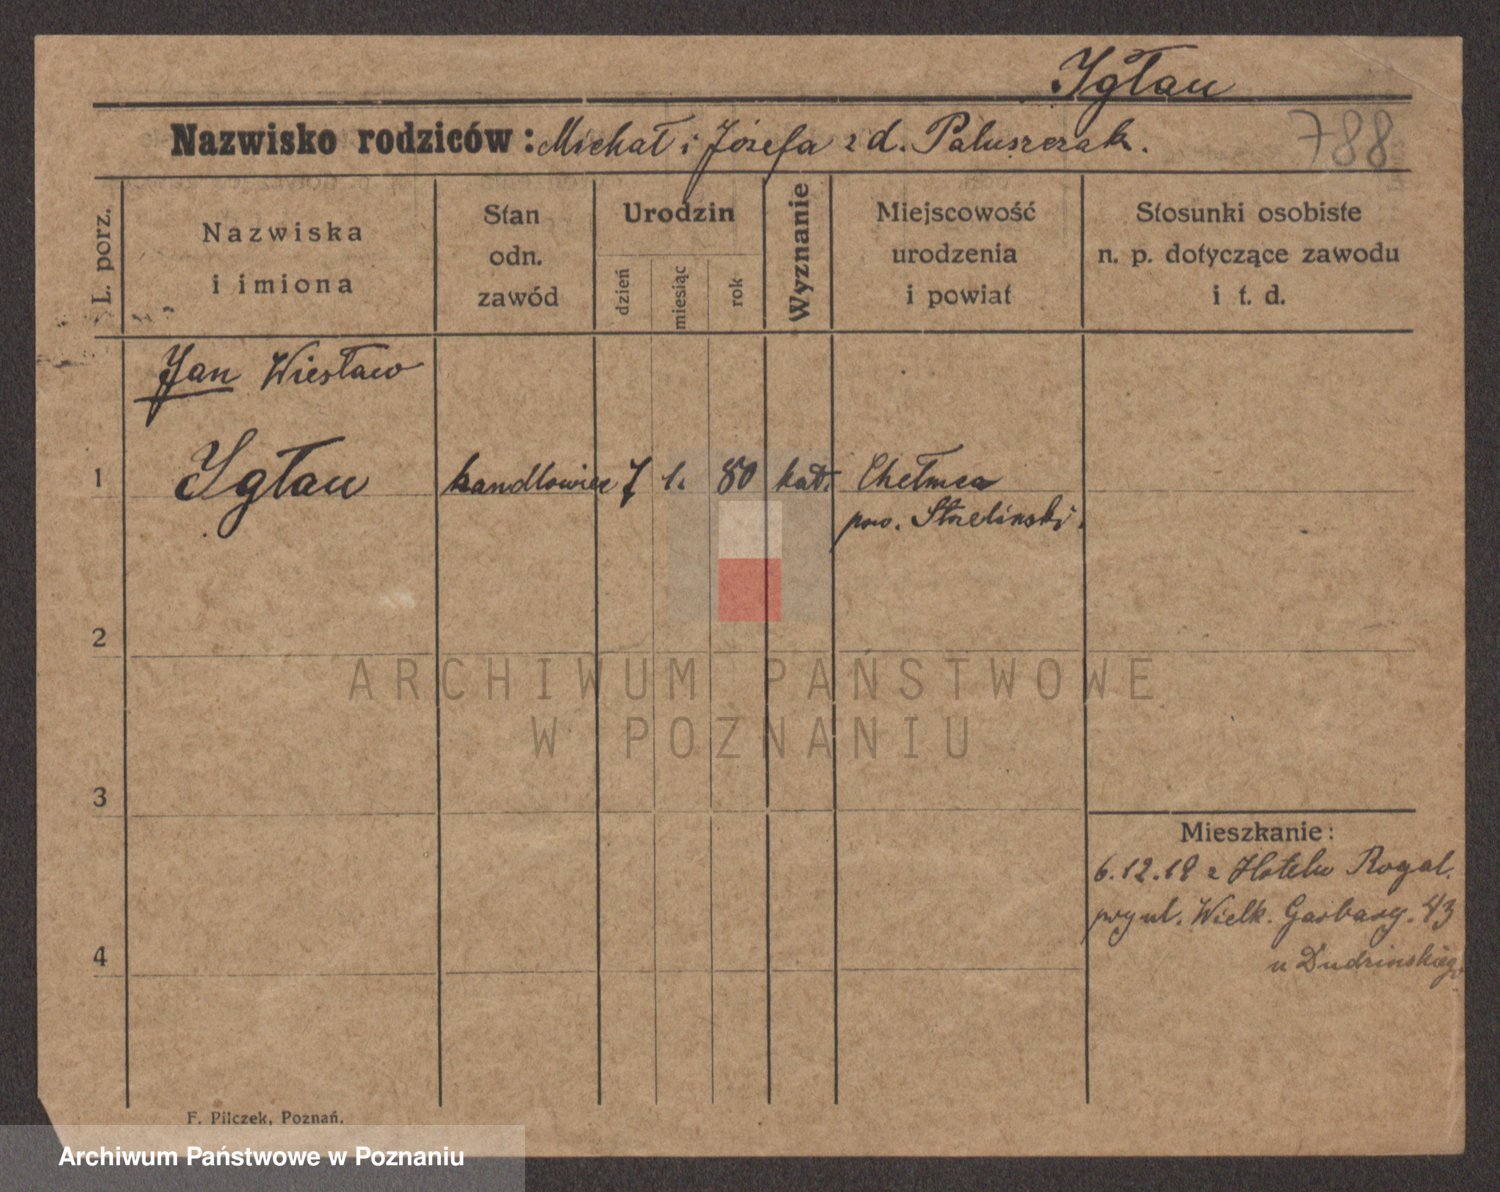 Igłau
Nazwisko rodziców: Michał i Józefa z d. Paluszczak.
788
L. porz.
Nazwiska
i imiona
Stan
odn.
zawód
Urodzin
dzień
miesiąc
rok
Wyznanie
Miejscowość
urodzenia
i powiat
Stosunki osobiste
n. p. dotyczące zawodu
i t. d.
Jan Wiesław
1 Igłau handlowiec 7 1. 80 kat. Chełmca
pow. Strzeliński.
2
3
4
Mieszkanie:
6.12.19 z Hotelu Royal.
przy ul. Wielk. Garbary. 43
u Dudzinskiego
F. Pilczek, Poznań.
ARCHIWUM PAŃSTWOWE
W POZNANIU
Archiwum Państwowe w Poznaniu